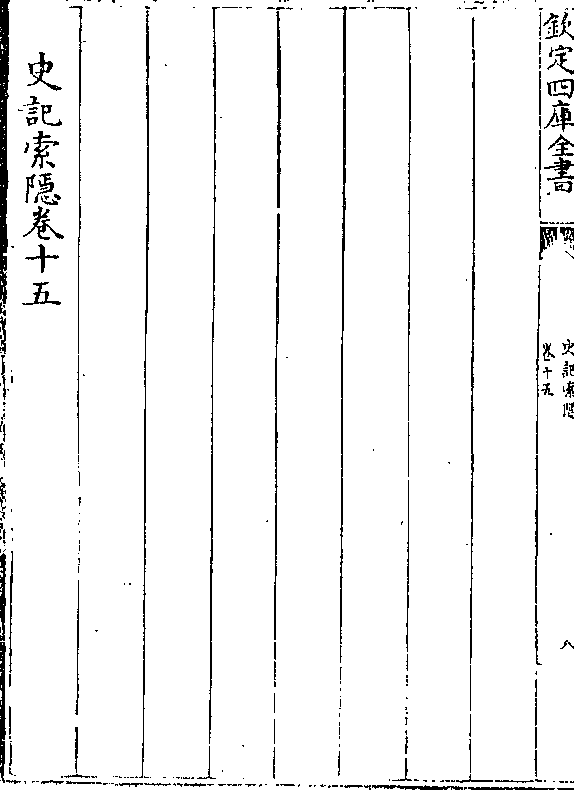 欽定四庫全書
史記索隱
卷十五
八
史記索隱卷十五